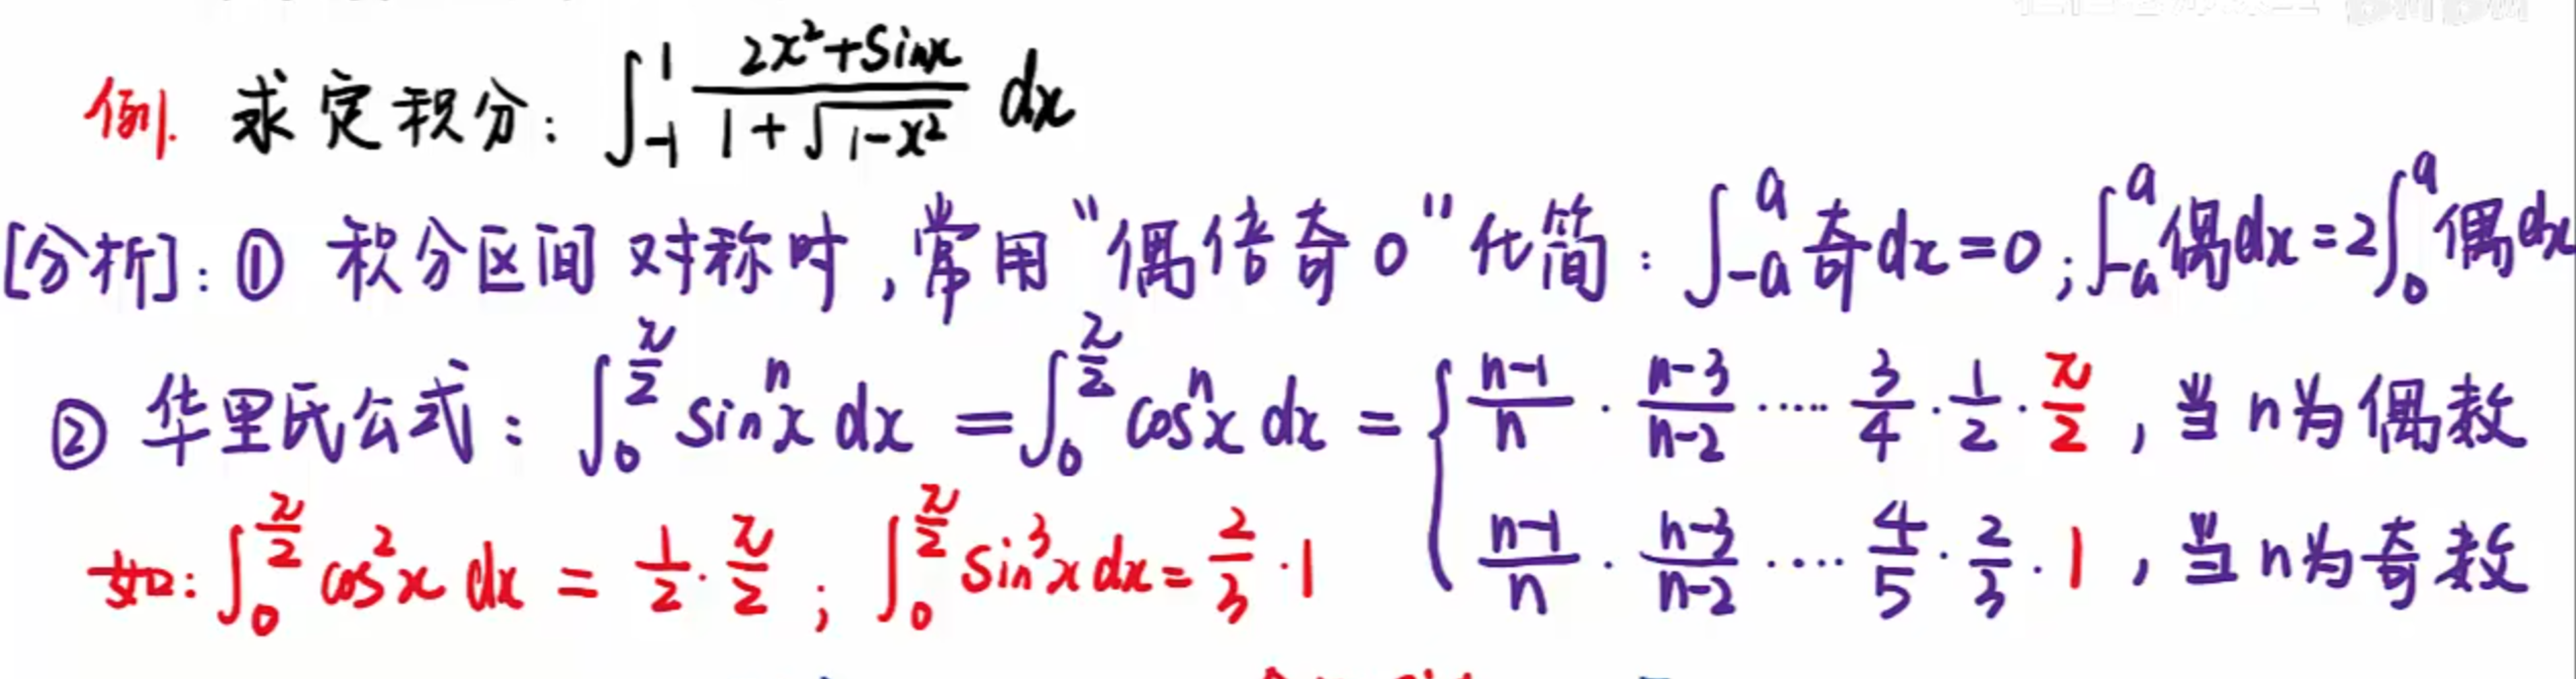 例. 求定积分: ∫_{-1}^{1} \frac{2x²+sinx}{1+√(1-x²)} dx
[分析]: ① 积分区间对称时, 常用“偶倍奇0”化简: ∫_{-a}^{a} 奇dx=0; ∫_{-a}^{a} 偶dx=2∫_{0}^{a} 偶dx
② 华里氏公式: ∫_{0}^{\frac{π}{2}} sin^n x dx = ∫_{0}^{\frac{π}{2}} cos^n x dx = { \frac{n-1}{n} · \frac{n-3}{n-2} ····· \frac{3}{4} · \frac{1}{2} · \frac{π}{2}, 当n为偶数
\frac{n-1}{n} · \frac{n-3}{n-2} ···· \frac{4}{5} · \frac{2}{3} · 1, 当n为奇数
如: ∫_{0}^{\frac{π}{2}} cos²x dx = \frac{1}{2} · \frac{π}{2}; ∫_{0}^{\frac{π}{2}} sin³x dx = \frac{2}{3} · 1